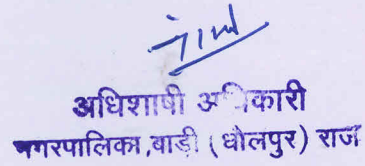 अधिशाषी अधिकारी
नगरपालिका,बाड़ी (धौलपुर) राज